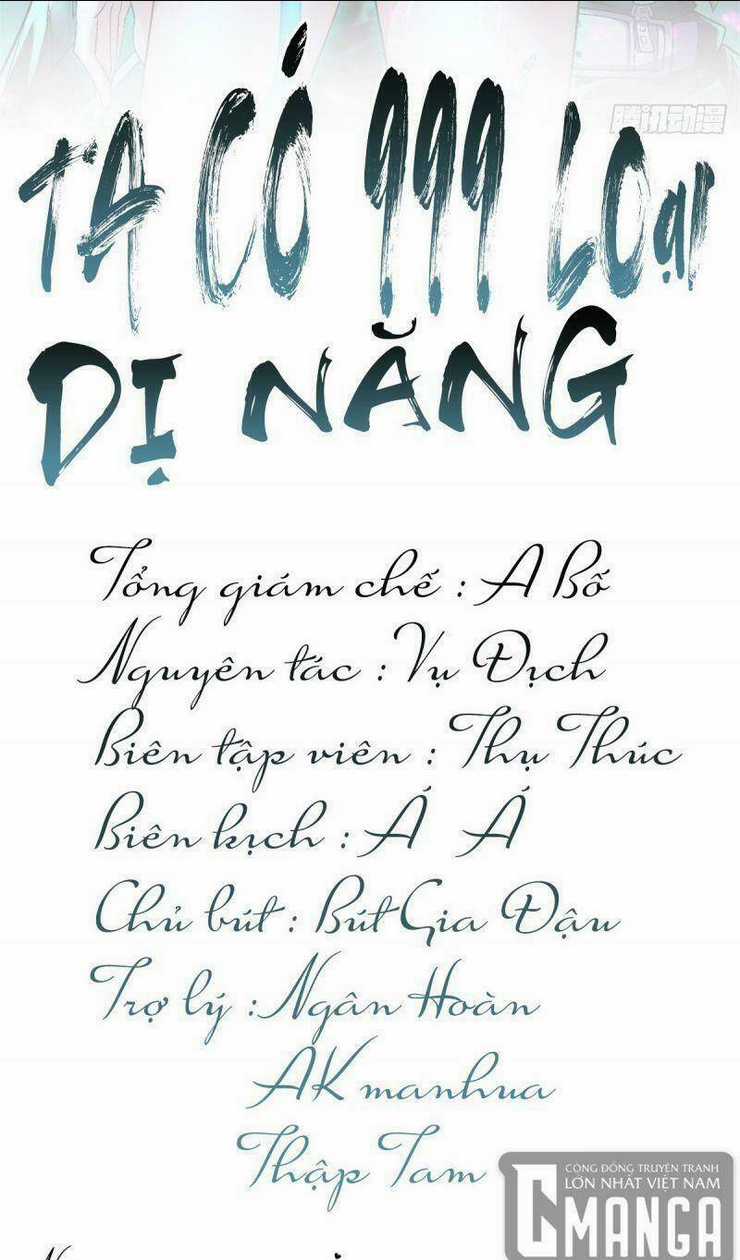 腾讯动漫
TA CÓ 999 LOẠI
DỊ NĂNG
Tổng giám chế : A Bố
Nguyên tác : Vụ Địch
Biên tập viên : Thụ Thúc
Biên kịch : Á Á
Chủ bút : Bút Gia Đậu
Trợ lý : Ngân Hoàn
AK manhua
Thập Tam
CỘNG ĐỒNG TRUYỆN TRANH
LỚN NHẤT VIỆT NAM
CMANGA